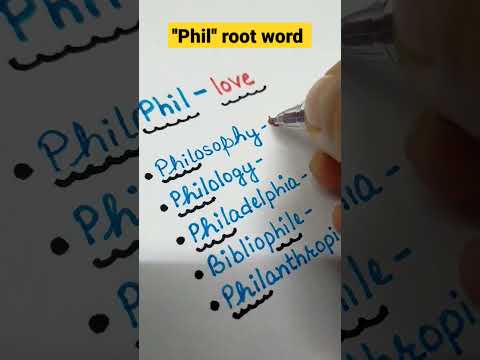 "Phil" root word
Phil - love
• Philosophy -
• Philology -
• Philadelphia -
• Bibliophile -
• Philanthropi